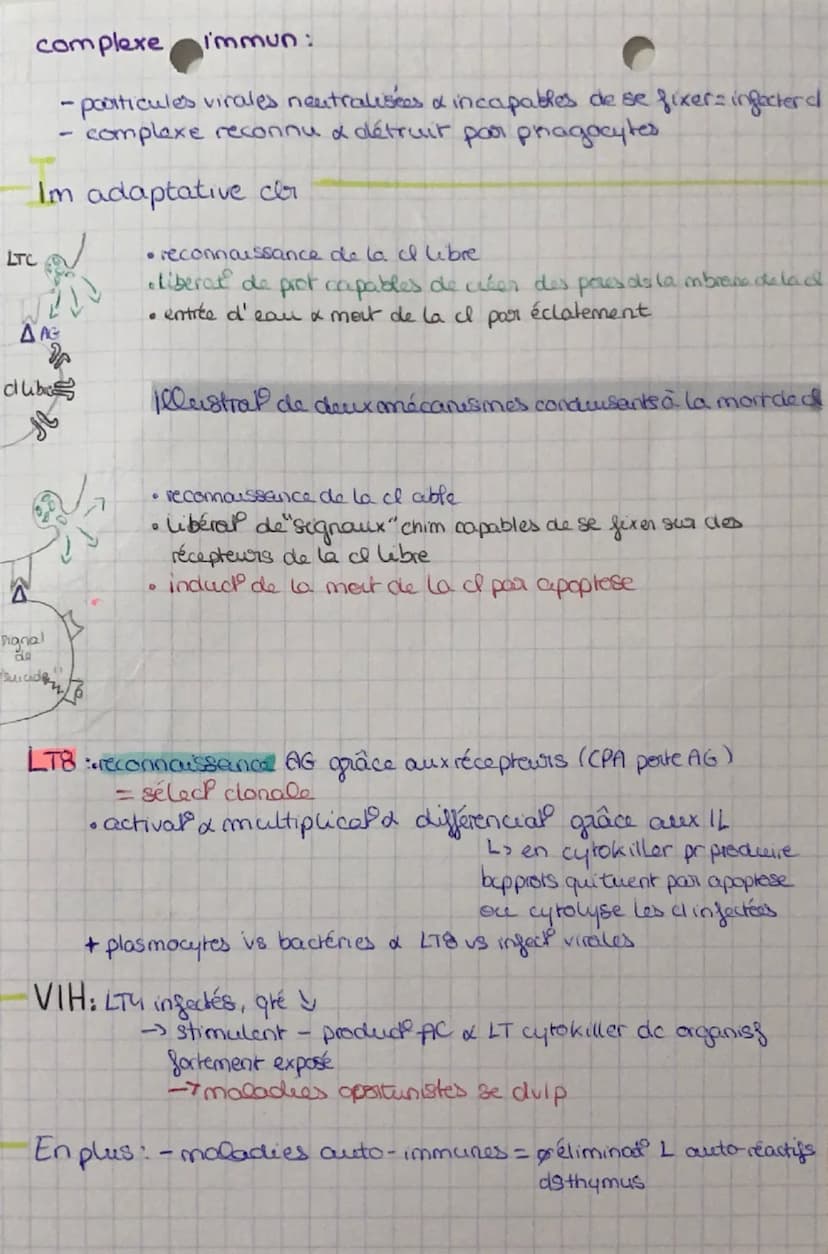 complexe immun :
- particules virales neutralisées & incapables de se fixer = infecter cl
- complexe reconnu & détruit par phagocytes
Im adaptative
LTC
• reconnaissance de la cl libre
• liberat° de prot capables de créer des pores ds la mbrane de la cl
• entrée d'eau & mort de la cl par éclatement
AG
cl libre
Illustrat° de deux mécanismes conduisants à la mort de cl
• reconnaissance de la cl
• libérat° de "signaux" chim capables de se fixer sur des
récepteurs de la cl libre
• induct° de la mort de la cl par apoptose
signal
de
"suicide"
LT8 : • reconnaissance AG grâce aux récepteurs (CPA porte AG)
= sélect° clonale
• activat° & multiplicat° & différenciat° grâce aux IL
↳ en cytokiller pr produire
bcp prots qui tuent par apoptose
ou cytolyse les cl infectées
+ plasmocytes vs bactéries & LT8 vs infect° virales
VIH : LT4 infectés, qté ↘
→ stimulent - product° AC & LT cytokiller dc organism
fortement exposé
→ maladies oportunistes se dvlp
En plus : - maladies auto-immunes = éliminat° L auto-réactifs
ds thymus